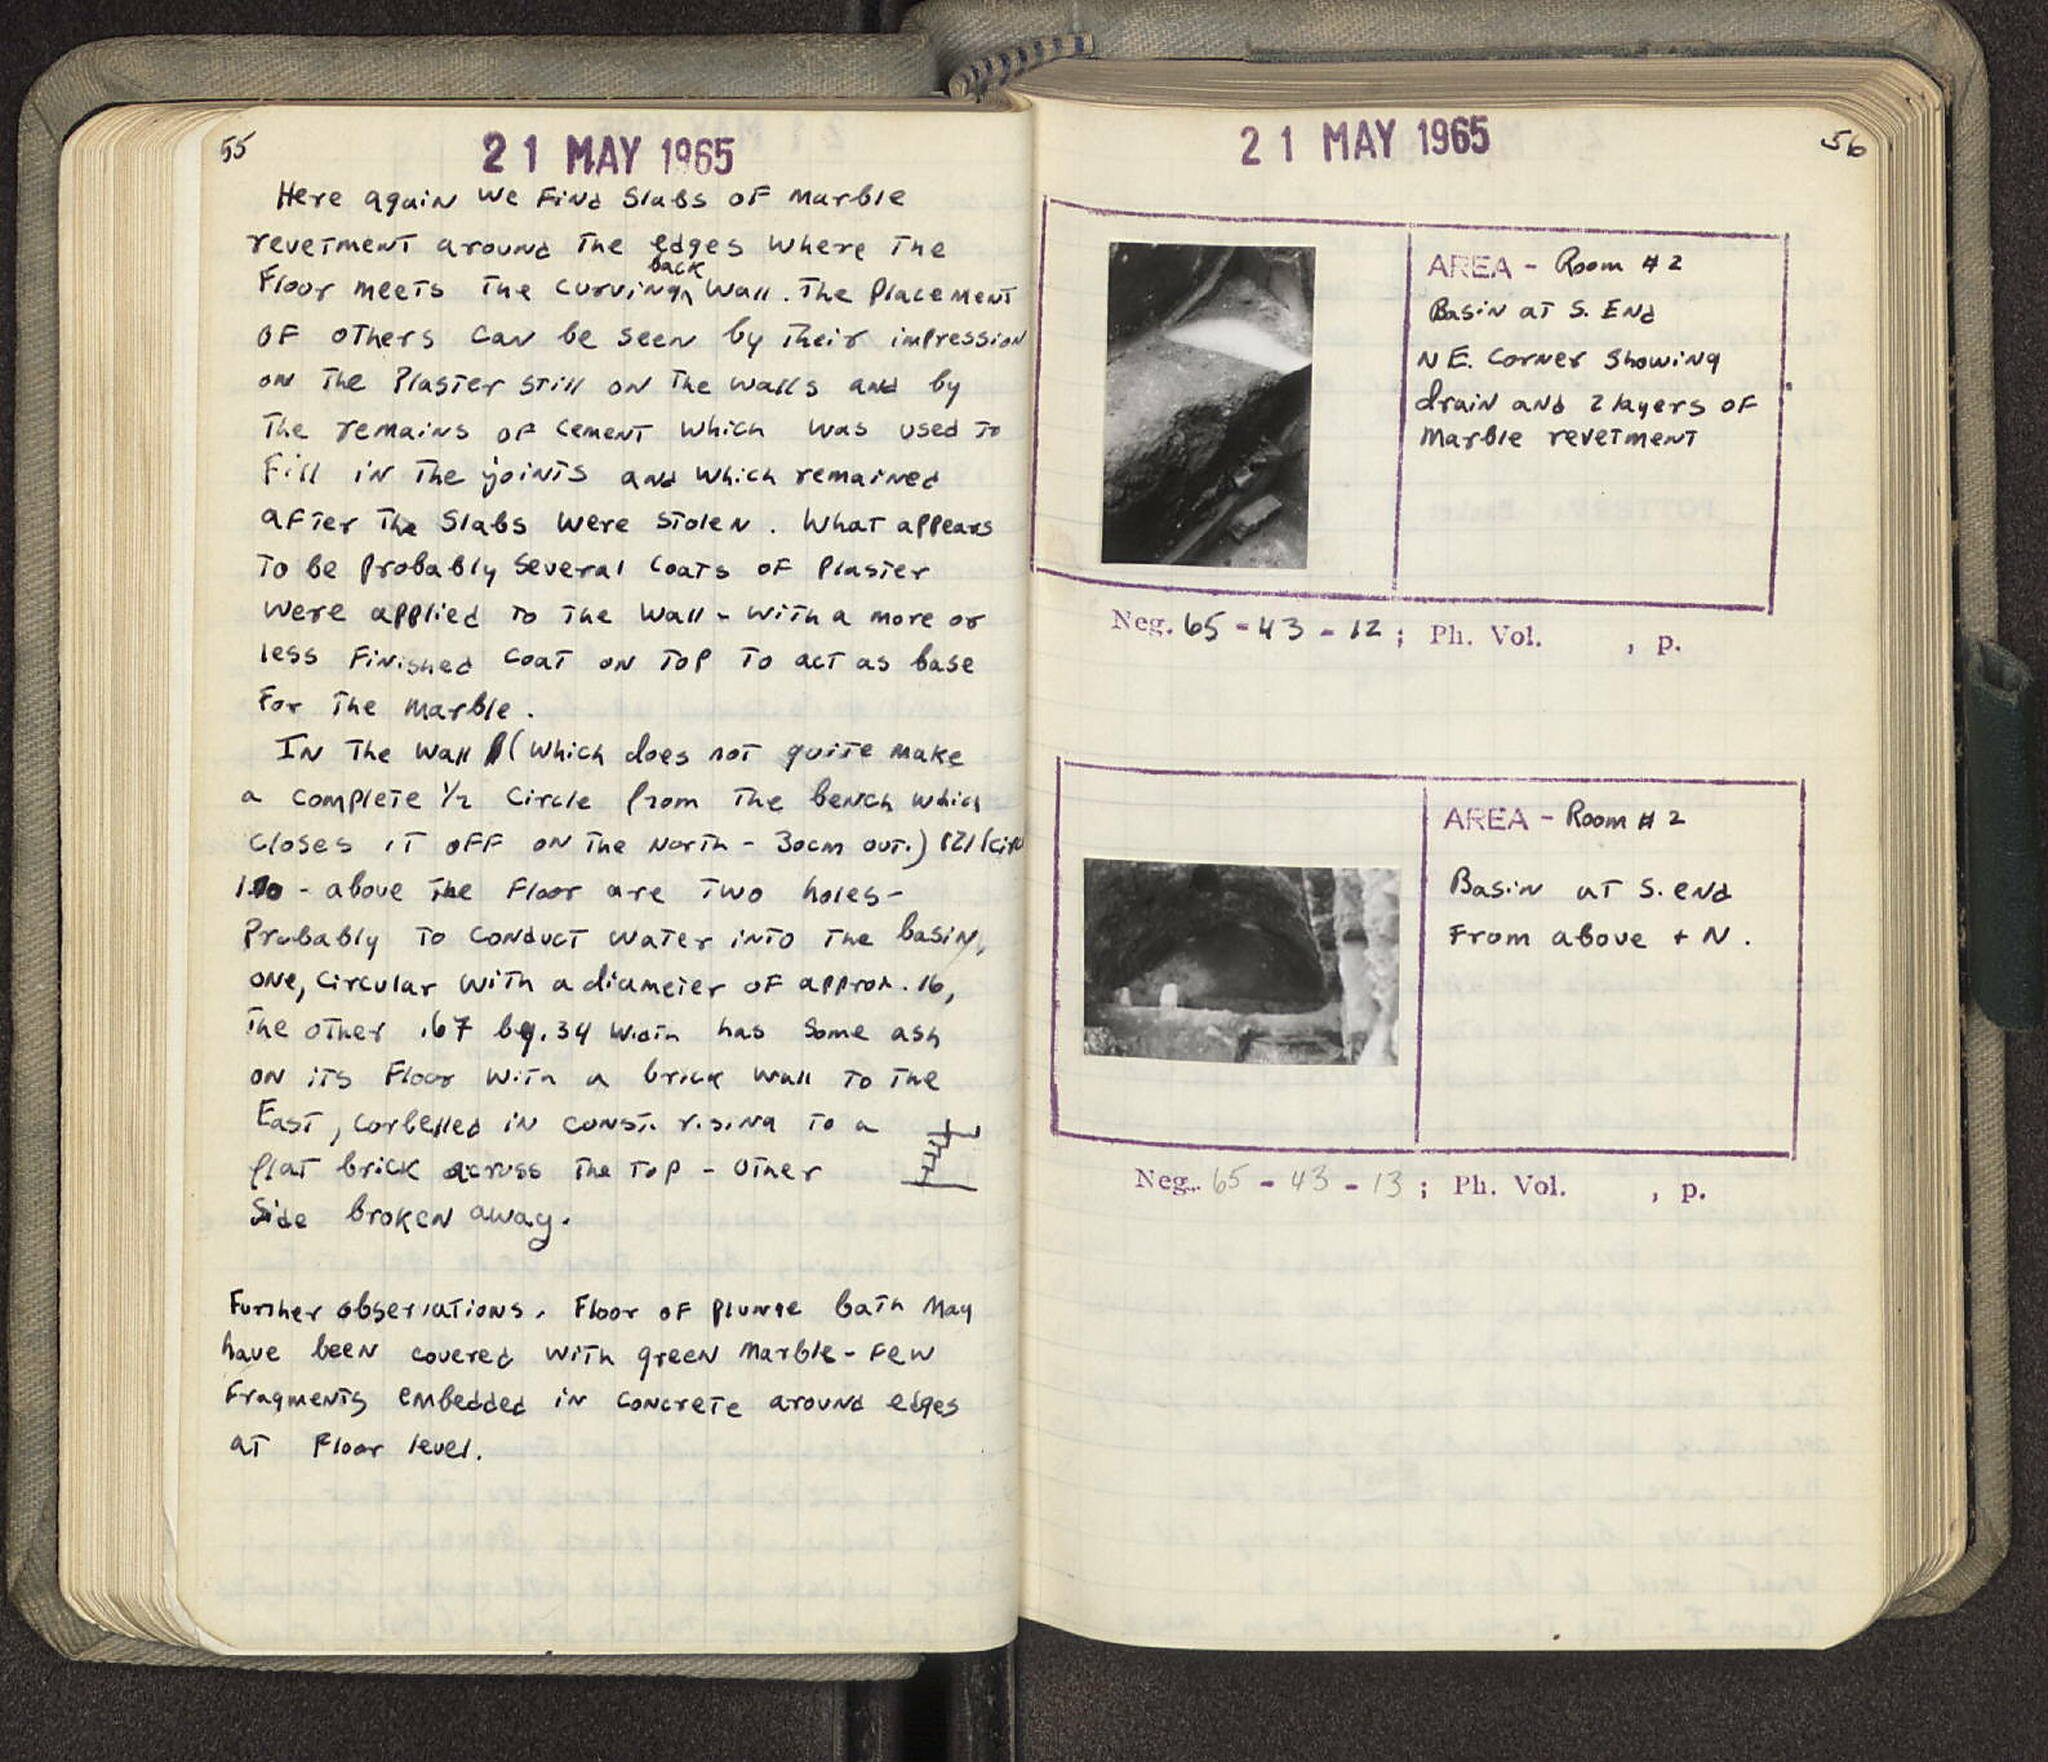 55
21 MAY 1965
Here again we find slabs of marble
revetment around the edges where the
back
floor meets the curving^ wall. The placement
of others can be seen by their impression
on the plaster still on the walls and by
the remains of cement which was used to
fill in the joints and which remained
after the slabs were stolen. What appears
to be probably several coats of plaster
were applied to the wall - with a more or
less finished coat on top to act as base
for the marble.
In the wall (which does not quite make
a complete 1/2 circle from the bench which
closes it off on the north - 30cm out.)
above the floor are two holes -
Probably to conduct water into the basin,
one, circular with a diameter of approx. .16,
the other .67 by .34 width has some ash
on its floor with a brick wall to the
East, corbelled in const. rising to a
flat brick across the top - other
side broken away.
Further observations. Floor of plunge bath may
have been covered with green marble - few
fragments embedded in concrete around edges
at floor level.
21 MAY 1965
56
AREA - Room #2
Basin at S. End
NE. Corner showing
drain and 2 layers of
marble revetment
Neg. 65 - 43 - 12 ; Ph. Vol. , p.
AREA - Room #2
Basin at S. end
From above + N.
Neg. 65 - 43 - 13 ; Ph. Vol. , p.